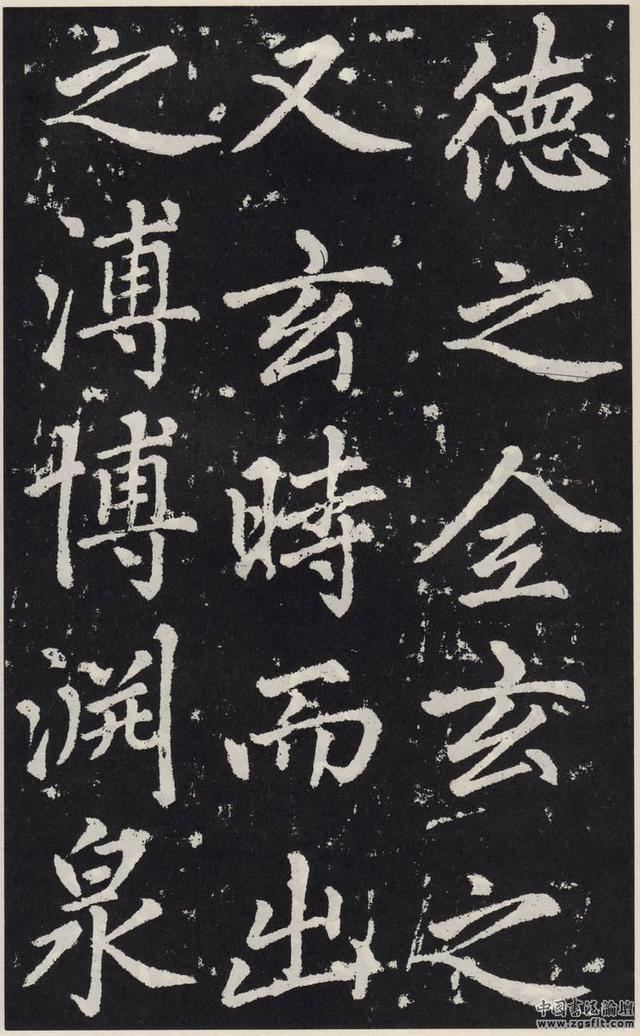 德之全玄之
又玄時而出
之溥博渊泉
中国书法论坛
www.zgsflt.com